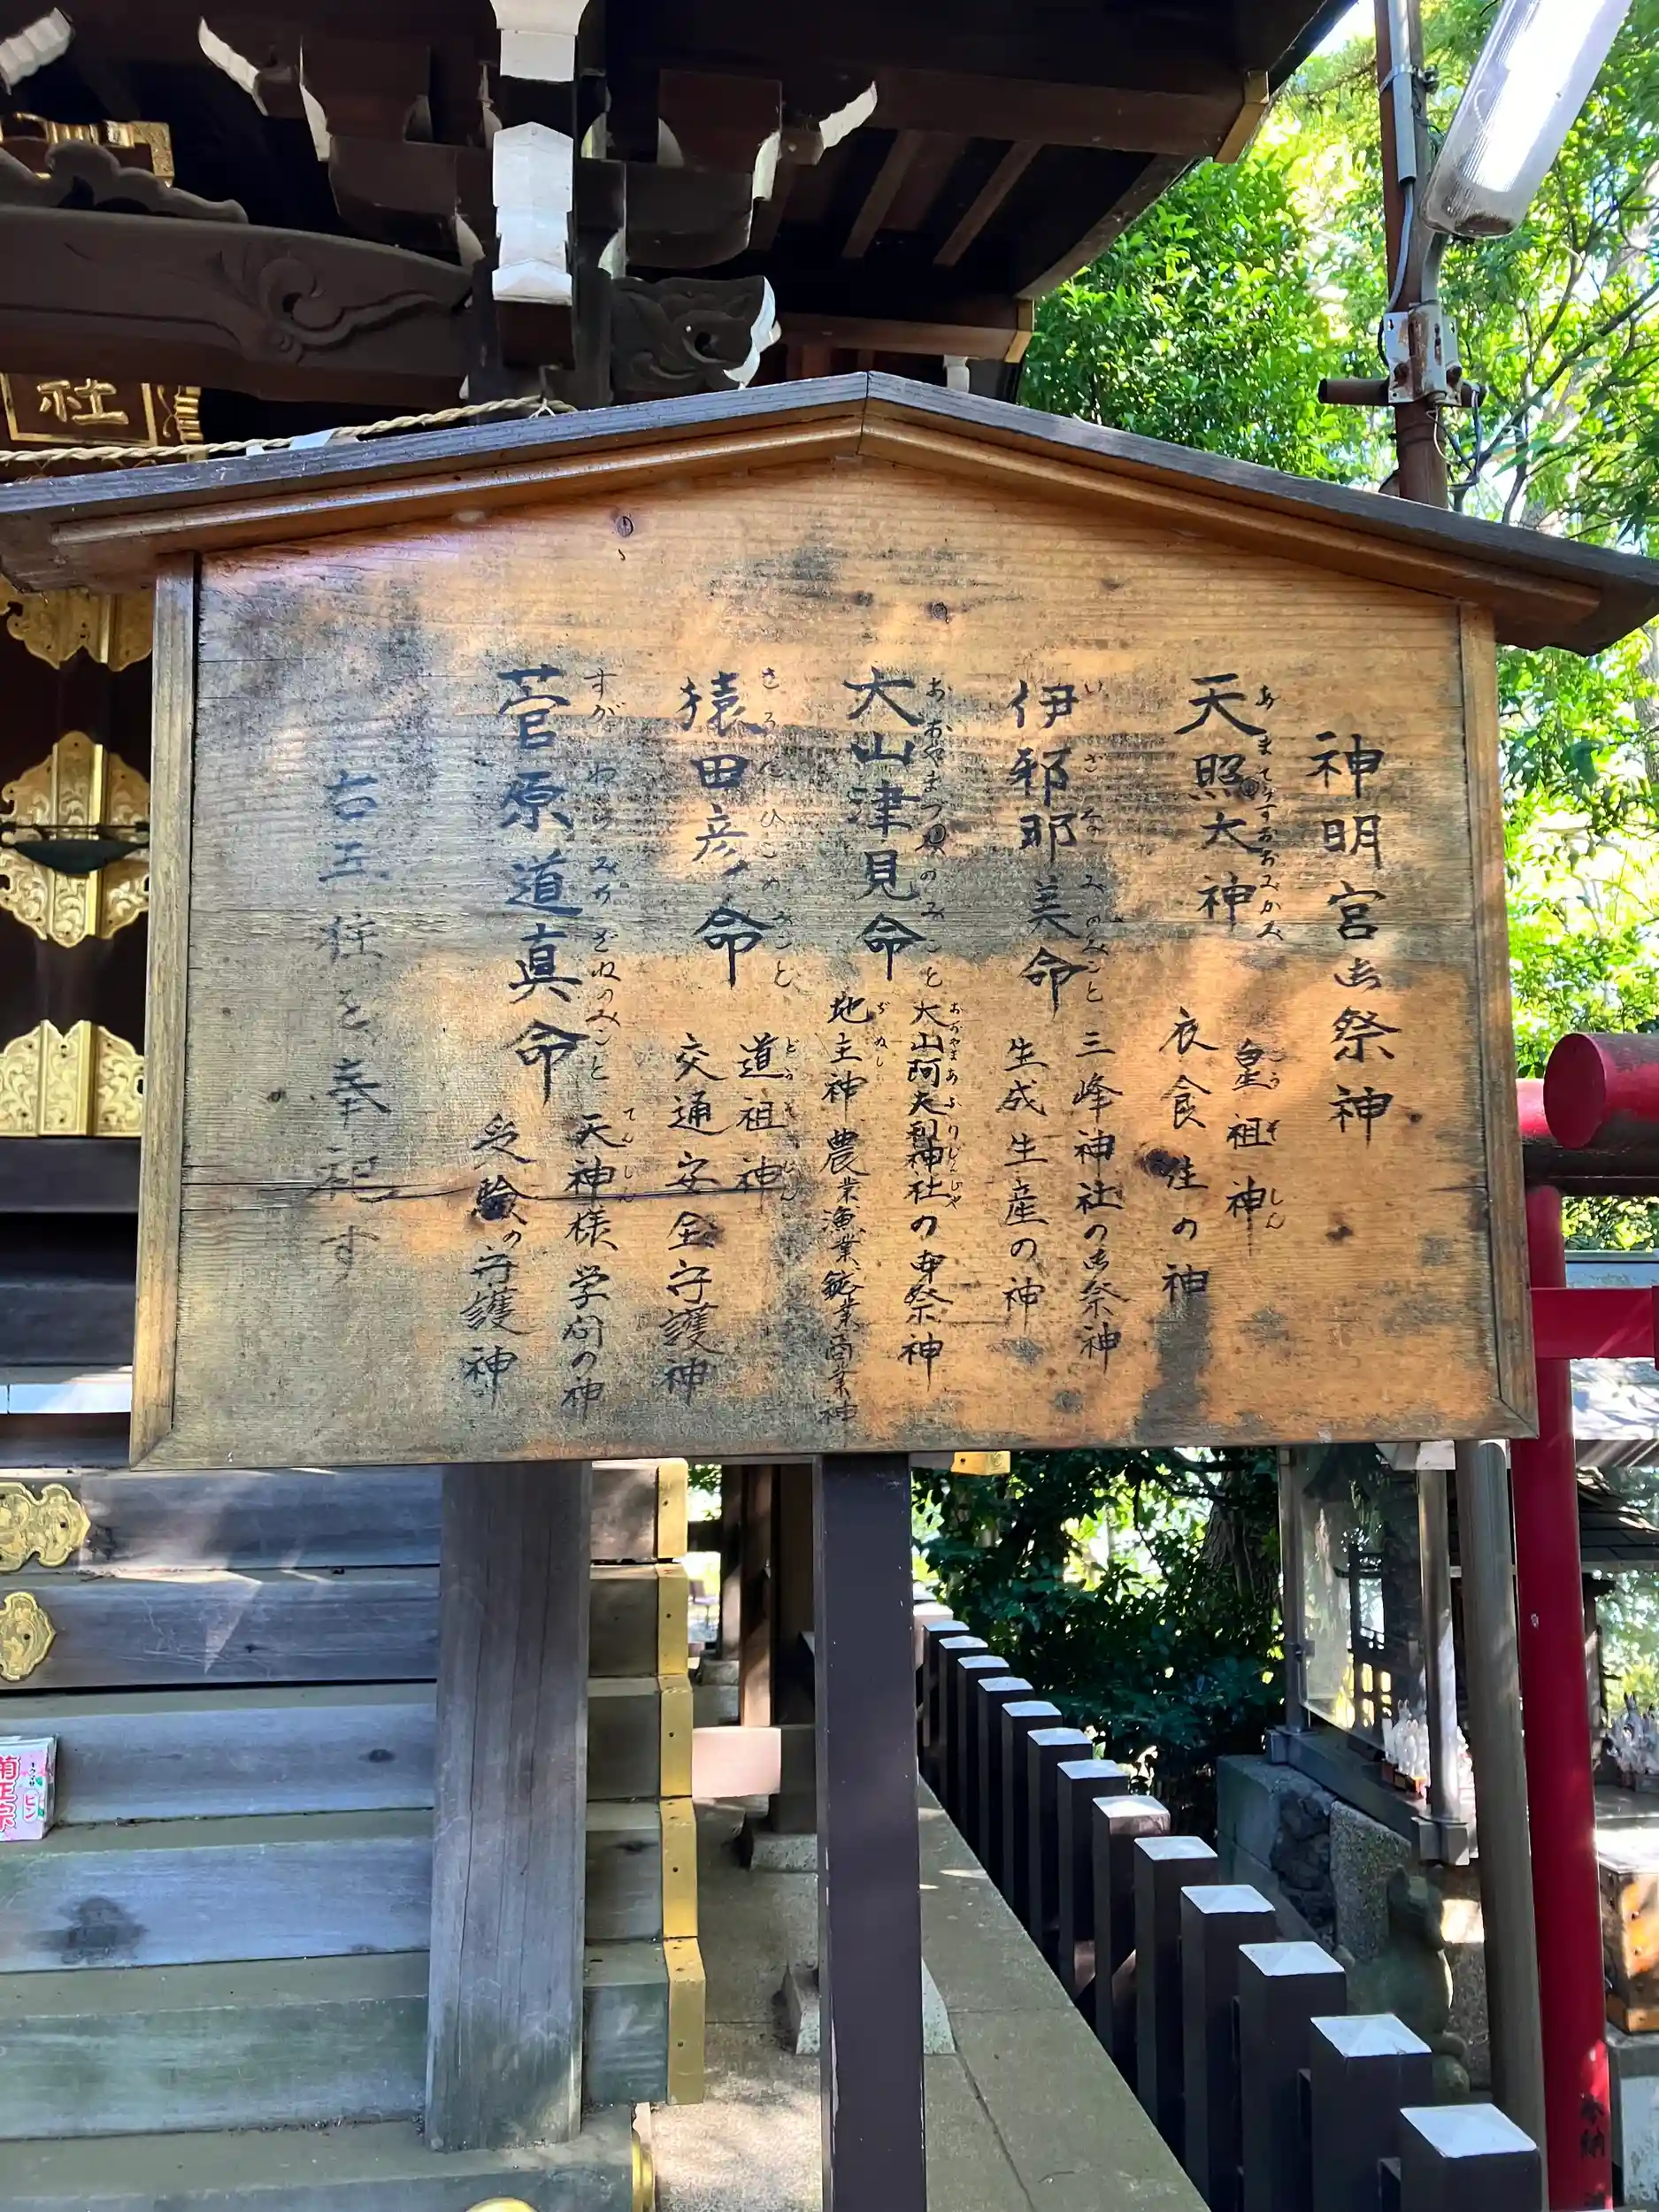 神明宮御祭神
天照大神
あまてらすおおみかみ
皇祖神
こうそしん
衣食住の神
伊邪那美命
いざなみのみこと
三峰神社の御祭神
生成生産の神
大山津見命
おおやまつみのみこと
大山阿夫利神社の御祭神
おおやまあふりじんじゃ
地主神 農業漁業鉱業商業神
ぢぬし
猿田彦命
さるたひこのみこと
道祖神
どうそじん
交通安全守護神
菅原道真命
すがわらみちざねのみこと
天神様 学問の神
てんじん
受験の守護神
右五柱を奉祀す
社
菊正宗
ピン
奉納